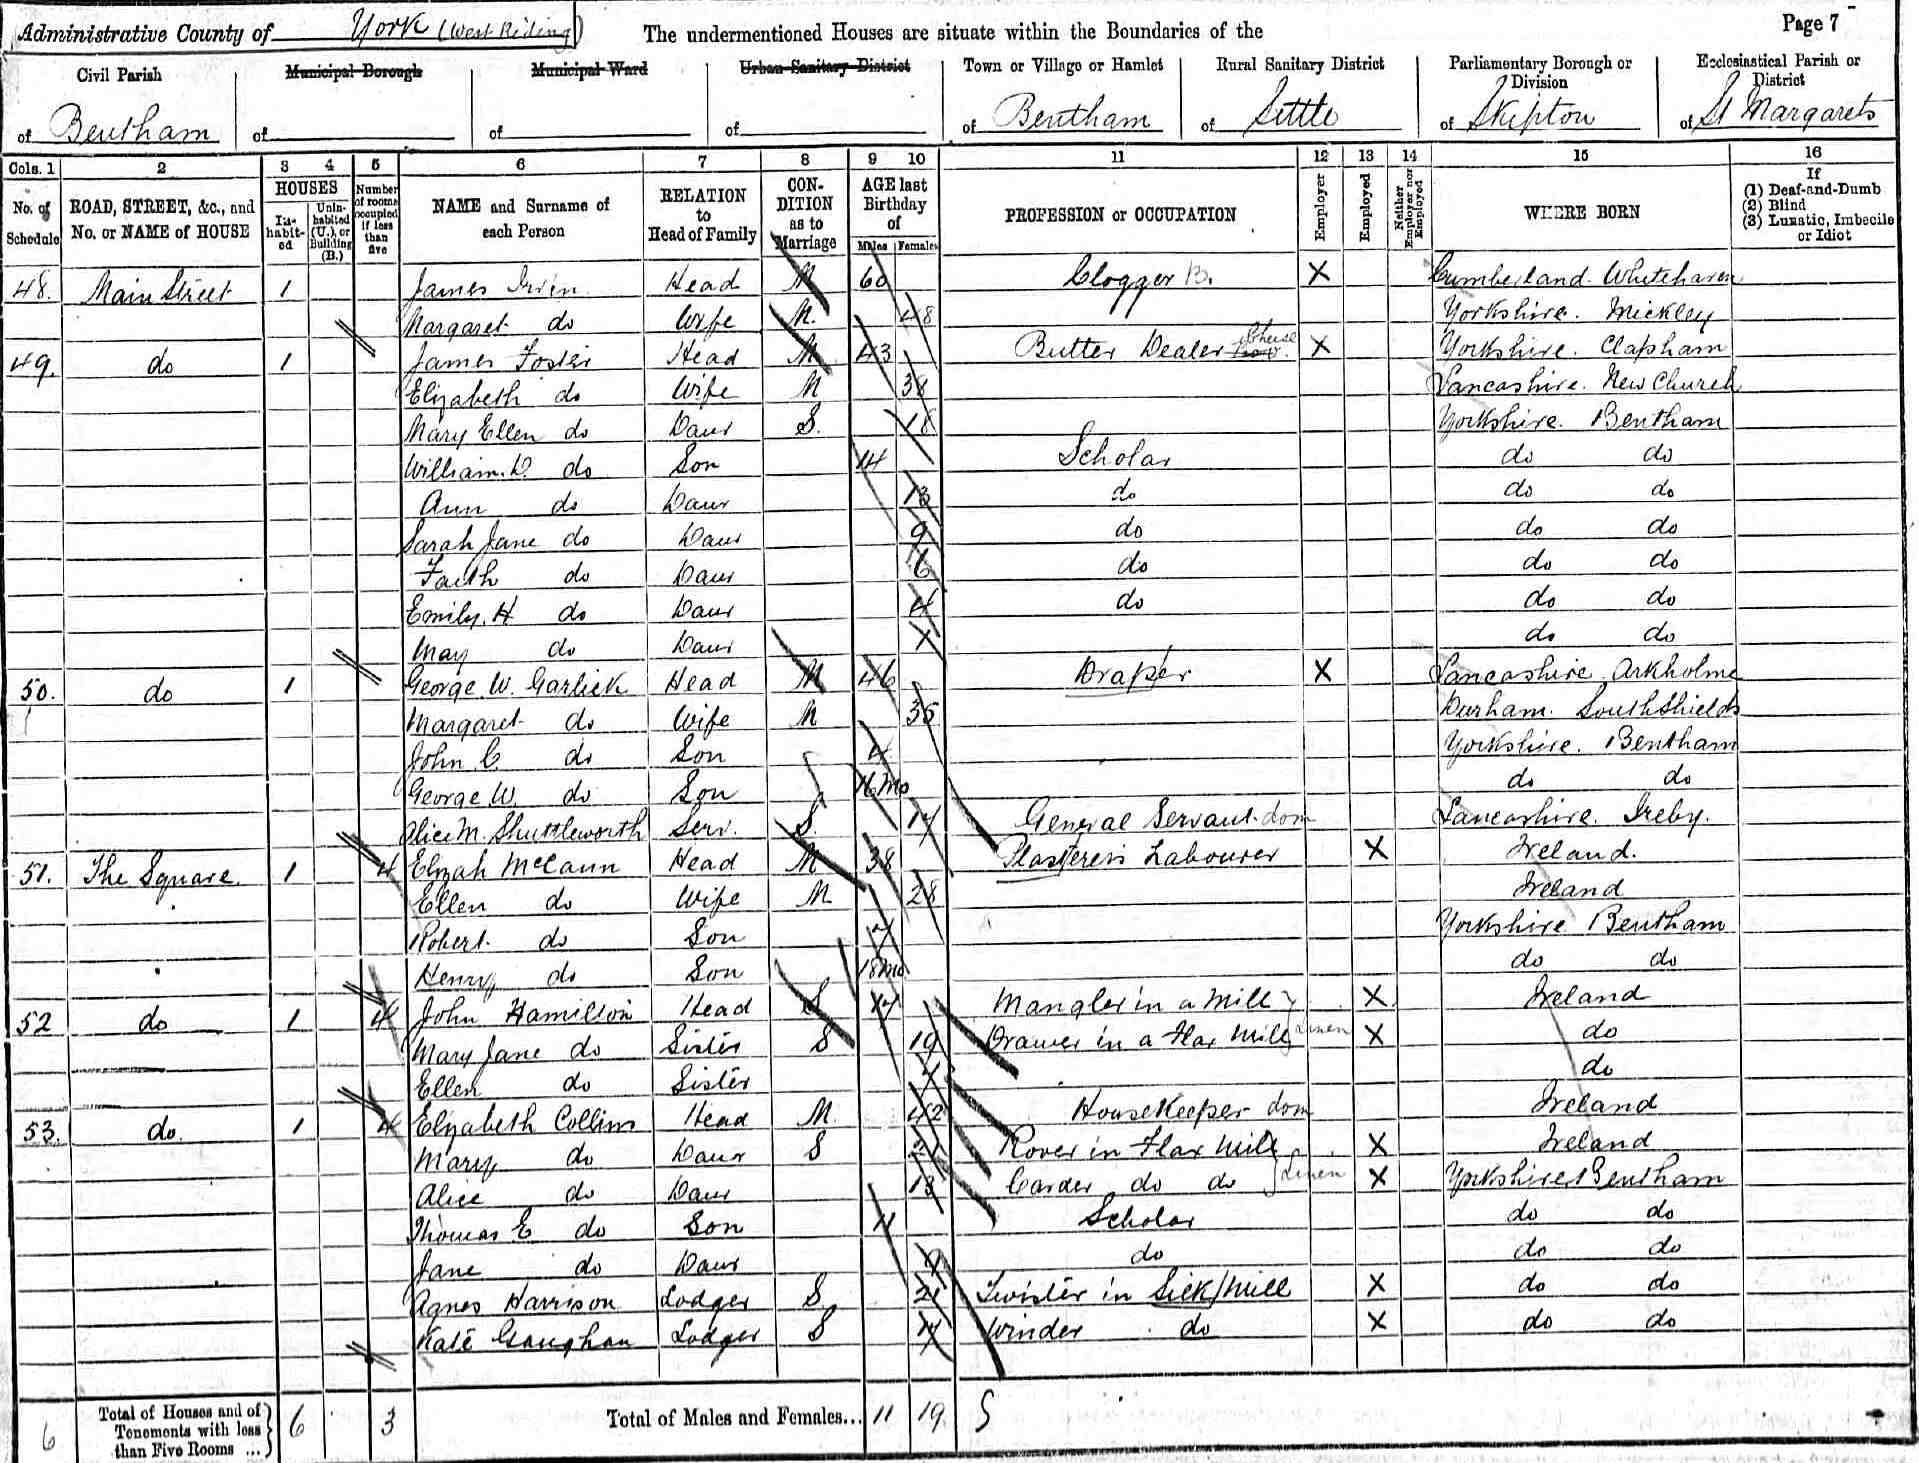 Administrative County of York (West Riding) The undermentioned Houses are situate within the Boundaries of the Page 7
Civil Parish of Bentham
Municipal Borough of
Municipal Ward of
Urban Sanitary District of
Town or Village or Hamlet of Bentham
Rural Sanitary District of Settle
Parliamentary Borough or Division of Skipton
Ecclesiastical Parish or District of St Margarets
Cols. 1 2 3 4 5 6 7 8 9 10 11 12 13 14 15 16
No. of Schedule
ROAD, STREET, &c., and No. or NAME of HOUSE
HOUSES
In-habit-ed
Unin-habited (U.), or Building (B.)
Number of rooms occupied if less than five
NAME and Surname of each Person
RELATION to Head of Family
CON-DITION as to Marriage
AGE last Birthday of
Males Females
PROFESSION or OCCUPATION
Employer
Employed
Neither Employer nor Employed
WHERE BORN
If (1) Deaf-and-Dumb (2) Blind (3) Lunatic, Imbecile or Idiot
48. Main Street 1 James Irvin Head M 60 Clogger B. X Cumberland. Whitehaven
Margaret do Wife M. 48 Yorkshire. Mickley
49. do 1 James Foster Head M 43 Butter Dealer Cheese X Yorkshire. Clapham
Elizabeth do Wife M 38 Lancashire. New Church
Mary Ellen do Daur S. 18 Yorkshire. Bentham
William. D. do Son 14 Scholar do do
Ann do Daur 13 do do do
Sarah Jane do Daur 9 do do do
Faith do Daur 6 do do do
Emily. H do Daur 4 do do do
May do Daur do do
50. do 1 George W. Garlick Head M 46 Draper X Lancashire. Arkholme
Margaret do Wife M 35 Durham. South Shields
John C do Son 4 Yorkshire. Bentham
George W. do Son 16 mo do do
Alice M. Shuttleworth Serv. S. 17 General Servant. dom Lancashire. Ireby.
51. The Square. 1 4 Elijah McCann Head M 38 Plasterers Labourer X Ireland.
Ellen do Wife M 28 Ireland
Robert. do Son 7 Yorkshire Bentham
Henry do Son 18 mo do do
52 do 1 4 John Hamilton Head S 17 Mangler in a Mill X Ireland
Mary Jane do Sister S 19 Drawer in a Flax Mill Linen X do
Ellen do Sister do
53. do. 1 4 Elizabeth Collins Head M. 42 Housekeeper dom Ireland
Mary do Daur S 21 Rover in Flax Mill X Ireland
Alice do Daur 13 Carder do do Linen X Yorkshire Bentham
Thomas E do Son 11 Scholar do do
Jane do Daur 9 do do do
Agnes Harrison Lodger S 21 Twister in Silk Mill X do do
Kate Gaughan Lodger S 17 Winder do X do do
6 Total of Houses and of Tenements with less than Five Rooms ... 6 3 Total of Males and Females... 11 19. 5